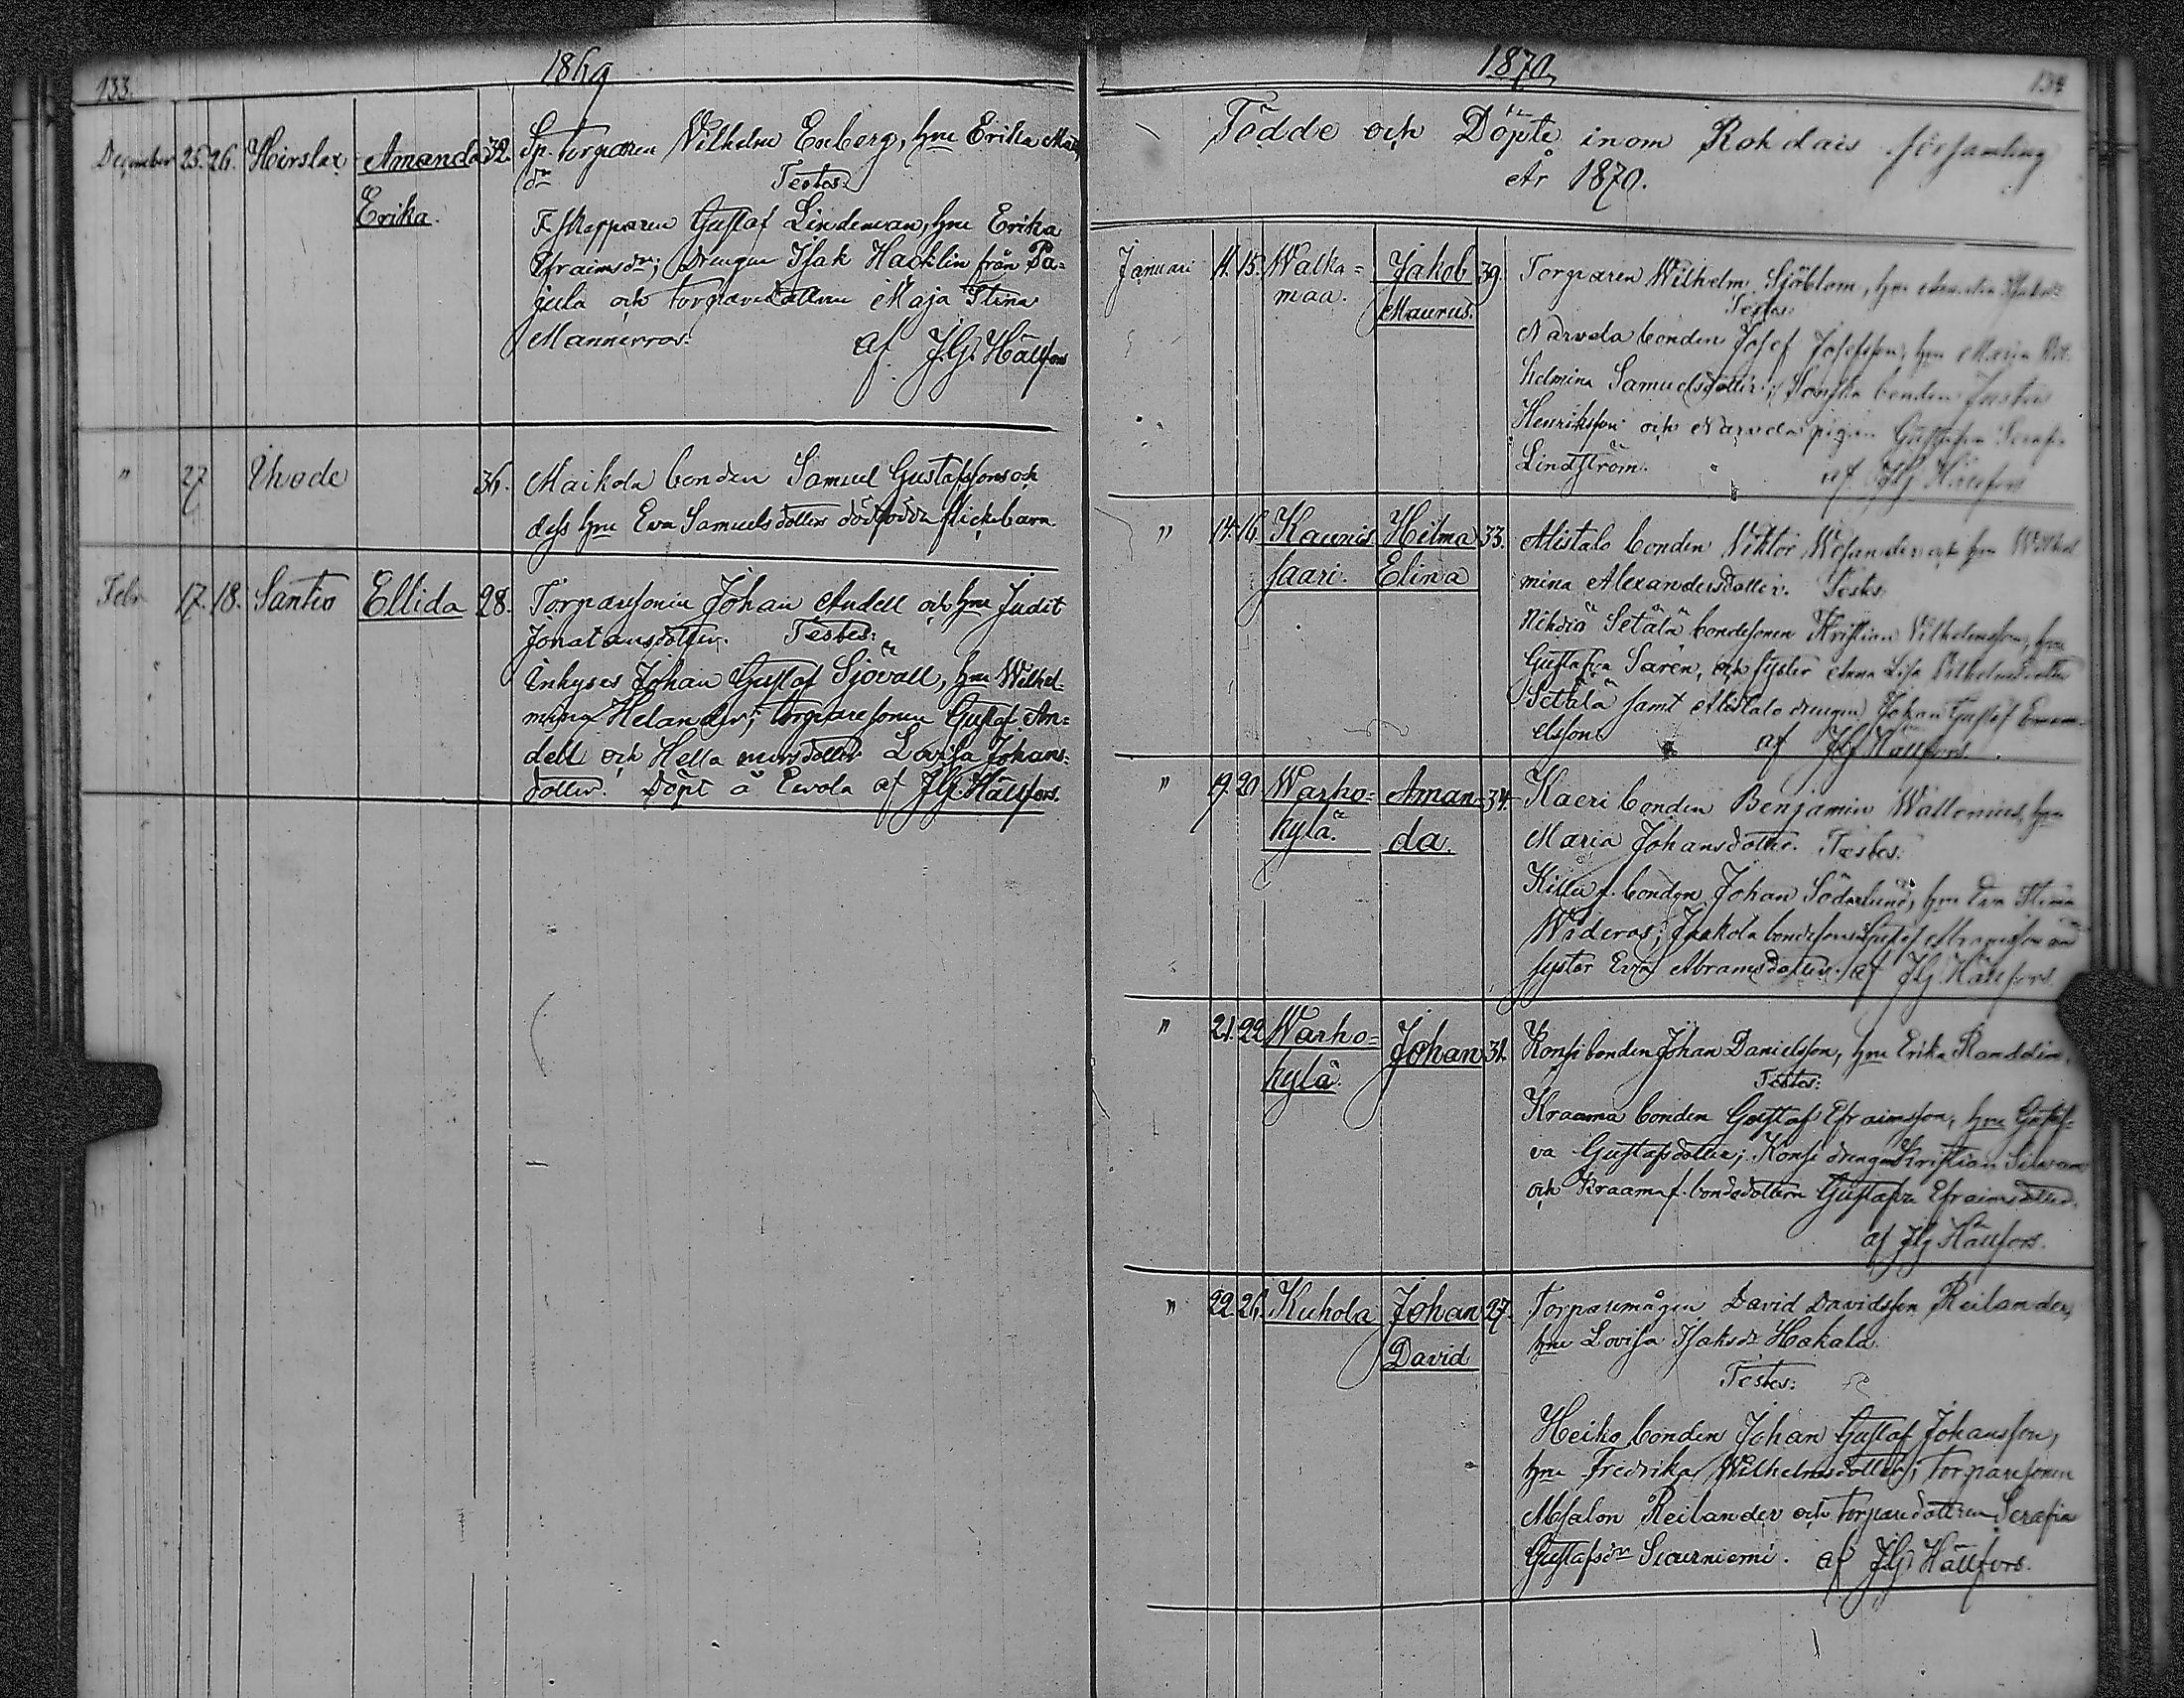 133.
1869
December 25. 26. Hirslax Amanda 32. Sp. torparen Wilhelm Enberg, hu Erika Mats
dr Testes:
Erika. F. skepparen Gustaf Lindeman, hu Erika
Efraimsdr; Drengen Isak Hacklin från Pa=
jula och torparedottren Maja Stina
Mannerros. af J.G. Hällfors
" 27 Ihode 36. Maikola bonden Samuel Gustafssons och
dess hu Eva Samuelsdotters dödfödda flickebarn
Febr. 17. 18. Santio Ellida 28. Torparesonen Johan Andell och hu Judit
Jonatansdotter. Testes:
Inhyses Johan Gustaf Sjövall, hu Wilhel=
mina Helander; torparesonen Gustaf An=
dell och Hella mursdotter Lovisa Johans=
dotter. Döpt å Ewola af J.G. Hällfors.
1870.
134
Födde och Döpte inom Rohdais församling
År 1870.
Januari 11. 15. Walka= Jakob 39. Torparen Wilhelm Sjöblom, hu
maa. Maurus. Testes:
Narvela bonden Josef Josefsson, hu Maria Wil
helmina Samuelsdotter; bonden Justus
Henriksson och Narvela pigan Gustafva Seraf.
Lindström. af J.G. Hällfors
" 14. 16. Kaunis Hilma 33. Alistalo bonden Viktor Wesander och hu Wilhel
saari. Elina mina Alexandersdotter. Testes
Nihdiö Setälä bondesonen Kristian Vilhelmsson, hu
Gustafva Saren, och syster Anna Lisa Vilhelmsdotter
Setälä samt Alistalo drengen Johan Gustaf Eman=
elsson. af J.G. Hällfors.
" 19. 20 Warho= Aman= 34. Kaeri bonden Benjamin Wallenius, hu
kylä. da. Maria Johansdotter. Testes:
Killu f. bonden Johan Söderlund, hu Eva Stina
Wideros; Jaakola bondesonen Gustaf Abramsson och
syster Eva Abramsdotter. af J.G. Hällfors.
" 21. 22 Warho= Johan 31. Konsi bonden Johan Danielsson, hu Erika Randelin.
kylä. Testes:
Kraama bonden Gustaf Efraimsson, hu Gustaf=
va Gustafsdotter; Konsi drengen Kristian Silvan
och Kraama f. bondedottern Gustafva Efraimsdotter.
af J.G. Hällfors.
" 22. 26. Kuhola Johan 27. Torparemågen David Davidsson Reilander,
David hu Lovisa Isaksdr Hakala.
Testes:
Heiko bonden Johan Gustaf Johansson,
hu Fredrika Wilhelmsdotter; torparesonen
Absalon Reilander och torparedottren Serafia
Gustafsdr Suurniemi. af J.G. Hällfors.